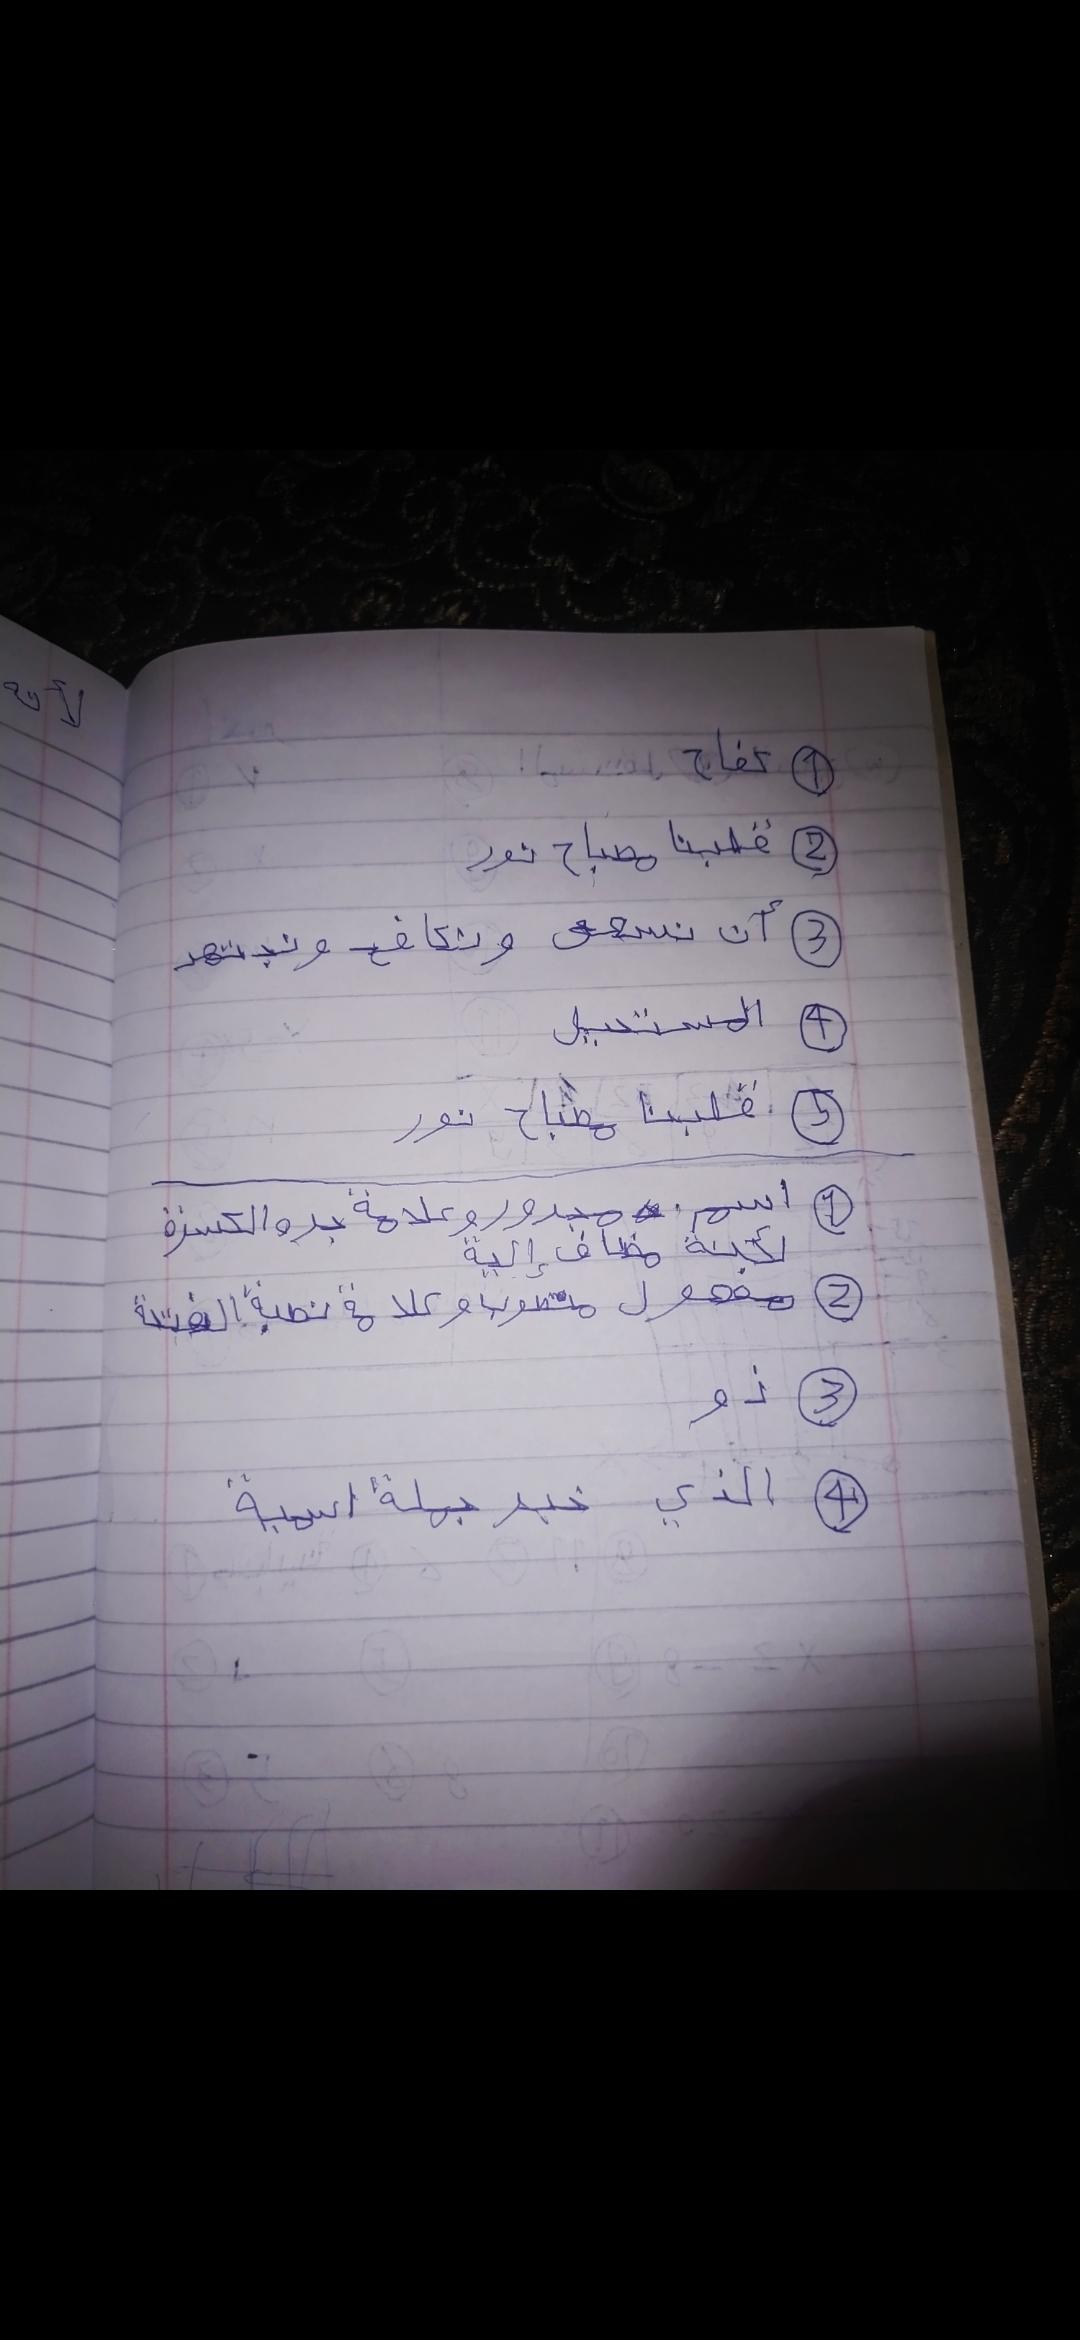 لأنه
① كفاح
② قلبنا مصباح نور
③ أن نسعى ونكافح ونجتهد
④ المستحيل
⑤ قلبنا مصباح نور
① اسم مجرور وعلامة جره الكسرة
لأنه مضاف إلية
② مفعول منصوب وعلامة نصبة الفتحة
③ ذو
④ الذي خبر جملة اسمية